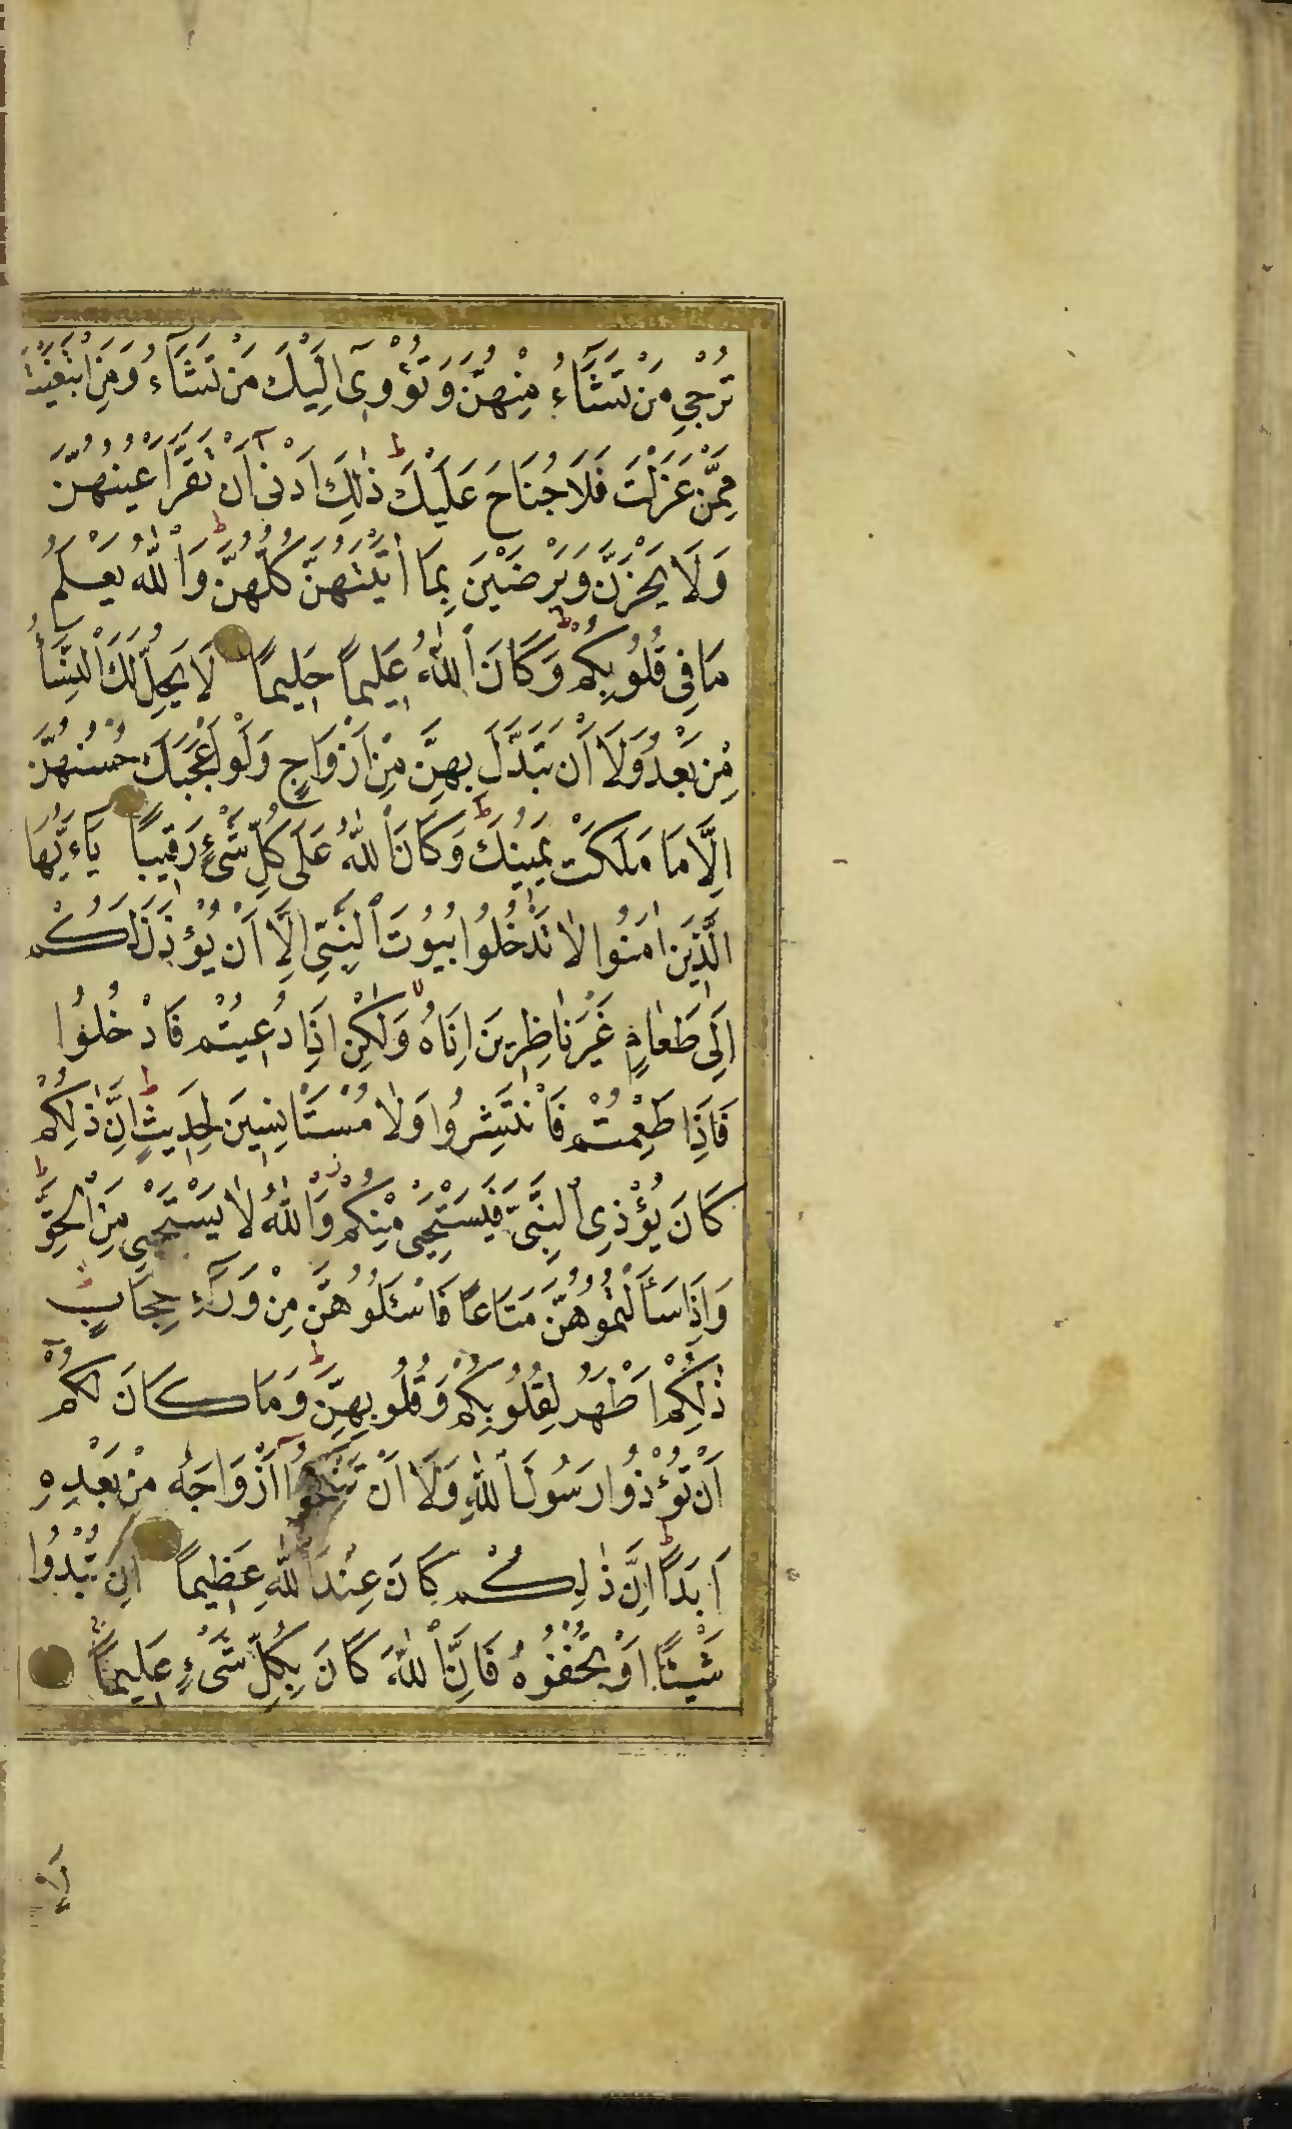 تُرْجِي مَنْ تَشَآءُ مِنْهُنَّ وَتُؤْوِيٓ اِلَيْكَ مَنْ تَشَآءُ وَمَنِ ابْتَغَيْتَ
مِمَّنْ عَزَلْتَ فَلَا جُنَاحَ عَلَيْكَ ط ذٰلِكَ اَدْنٰىٓ اَنْ تَقَرَّ اَعْيُنُهُنَّ
وَلَا يَحْزَنَّ وَيَرْضَيْنَ بِمَا اٰتَيْتَهُنَّ كُلُّهُنَّ ط وَاللّٰهُ يَعْلَمُ
مَا فِى قُلُوبِكُمْ ط وَكَانَ اللّٰهُ عَلِيمًا حَلِيمًا لَا يَحِلُّ لَكَ النِّسَآءُ
مِنْ بَعْدُ وَلَا اَنْ تَبَدَّلَ بِهِنَّ مِنْ اَزْوَاجٍ وَلَوْ اَعْجَبَكَ حُسْنُهُنَّ
اِلَّا مَا مَلَكَتْ يَمِينُكَ ط وَكَانَ اللّٰهُ عَلَى كُلِّ شَىْءٍ رَقِيبًا يَاءَيُّهَا
الَّذِينَ اٰمَنُوا لَا تَدْخُلُوا بُيُوتَ النَّبِىِّ اِلَّا اَنْ يُؤْذَنَ لَكُمْ
اِلَى طَعَامٍ غَيْرَ نَاظِرِينَ اِنَاهُ وَلٰكِنْ اِذَا دُعِيتُمْ فَادْخُلُوا
فَاِذَا طَعِمْتُمْ فَانْتَشِرُوا وَلَا مُسْتَأْنِسِينَ لِحَدِيثٍ ط اِنَّ ذٰلِكُمْ
كَانَ يُؤْذِى النَّبِىَّ فَيَسْتَحْيِى مِنْكُمْ ز وَاللّٰهُ لَا يَسْتَحْيِى مِنَ الْحَقِّ ط
وَاِذَا سَأَلْتُمُوهُنَّ مَتَاعًا فَاسْئَلُوهُنَّ مِنْ وَرَآءِ حِجَابٍ ط
ذٰلِكُمْ اَطْهَرُ لِقُلُوبِكُمْ وَقُلُوبِهِنَّ ط وَمَا كَانَ لَكُمْ
اَنْ تُؤْذُوا رَسُولَ اللّٰهِ وَلَا اَنْ تَنْكِحُوٓا اَزْوَاجَهُ مِنْ بَعْدِهِ
اَبَدًا ط اِنَّ ذٰلِكُمْ كَانَ عِنْدَ اللّٰهِ عَظِيمًا اِنْ تُبْدُوا
شَيْئًا اَوْ تُخْفُوهُ فَاِنَّ اللّٰهَ كَانَ بِكُلِّ شَىْءٍ عَلِيمًا
لَا